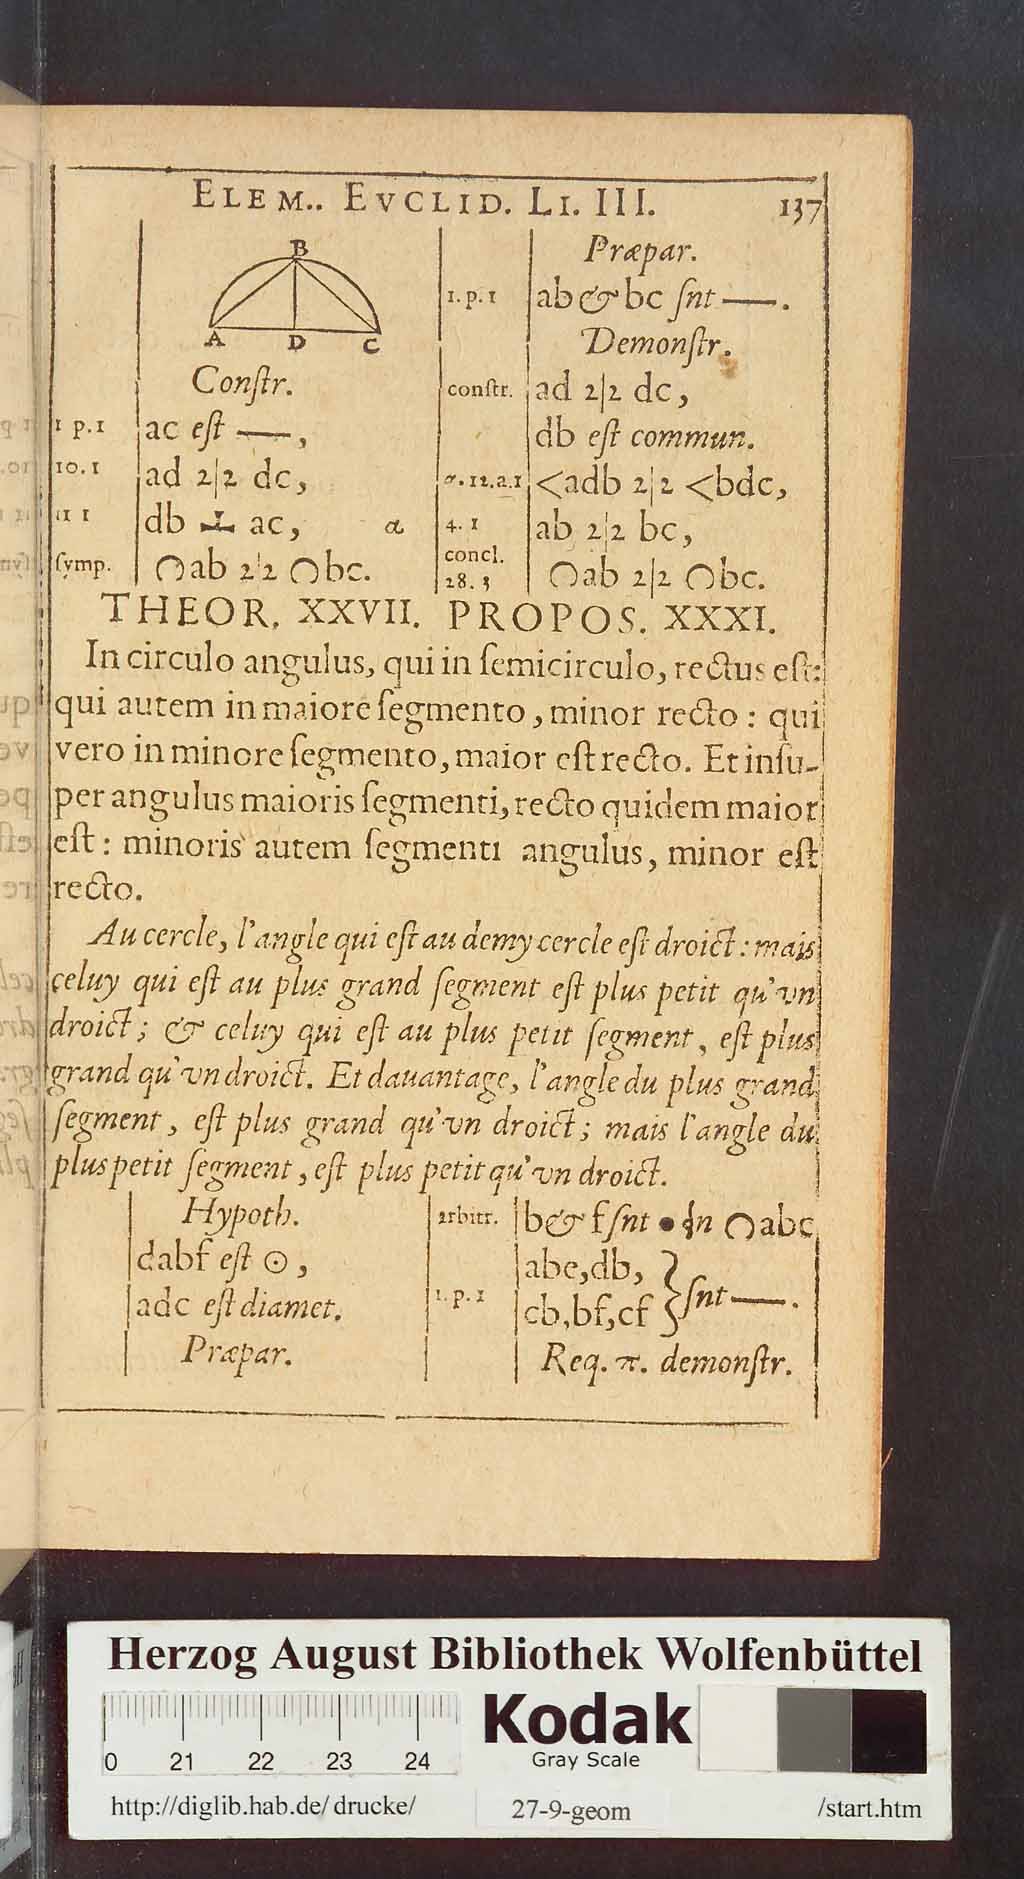 ELEM.. EVCLID. LI. III. 137
B
A D C
Conſtr.
1 p. 1 ac eſt —,
10. 1 ad 2|2 dc,
11 1 db ⊥ ac, α
ſymp. ∩ab 2|2 ∩bc.
Præpar.
1. p. 1 ab & bc ſnt —.
Demonſtr.
conſtr. ad 2|2 dc,
db eſt commun.
α. 12. a. 1 <adb 2|2 <bdc,
4. 1 ab 2|2 bc,
concl.
28. 3 ∩ab 2|2 ∩bc.
THEOR. XXVII. PROPOS. XXXI.
In circulo angulus, qui in ſemicirculo, rectus eſt:
qui autem in maiore ſegmento, minor recto: qui
vero in minore ſegmento, maior eſt recto. Et inſu-
per angulus maioris ſegmenti, recto quidem maior
eſt: minoris autem ſegmenti angulus, minor eſt
recto.
Au cercle, l'angle qui eſt au demy cercle eſt droict: mais
celuy qui eſt au plus grand ſegment eſt plus petit qu'vn
droict; & celuy qui eſt au plus petit ſegment, eſt plus
grand qu'vn droict. Et dauantage, l'angle du plus grand
ſegment, eſt plus grand qu'vn droict; mais l'angle du
plus petit ſegment, eſt plus petit qu'vn droict.
Hypoth.
dabf eſt ⊙,
adc eſt diamet.
Præpar.
arbitr. b & f ſnt • in ∩abc
abe, db,
1. p. 1 cb, bf, cf } ſnt —.
Req. π. demonſtr.
Herzog August Bibliothek Wolfenbüttel
0 21 22 23 24
Kodak
Gray Scale
http://diglib.hab.de/drucke/ 27-9-geom /start.htm